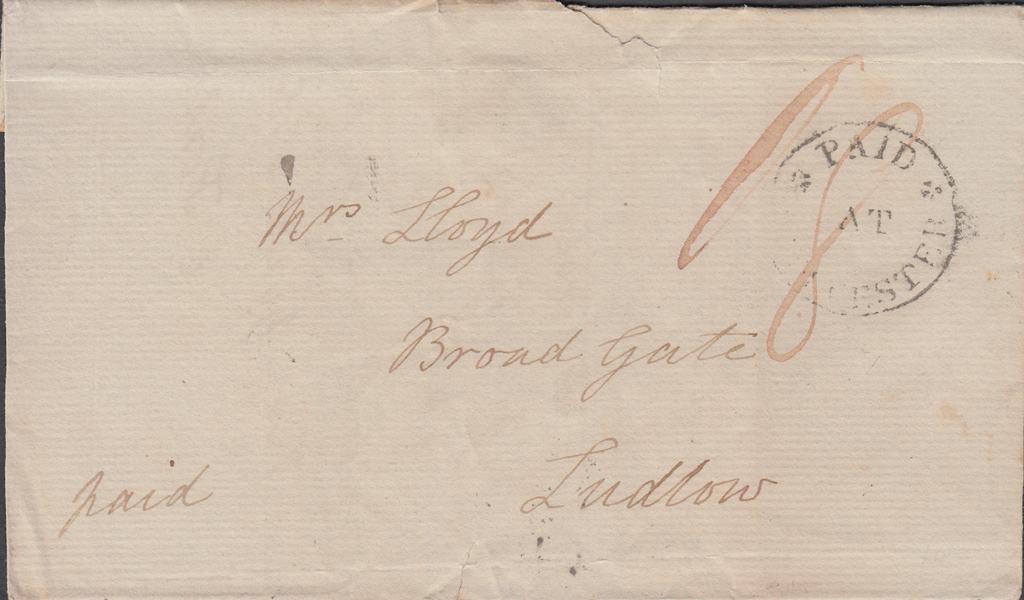 PAID
AT
ESTER
Mrs Lloyd
Broad Gate
Ludlow
paid